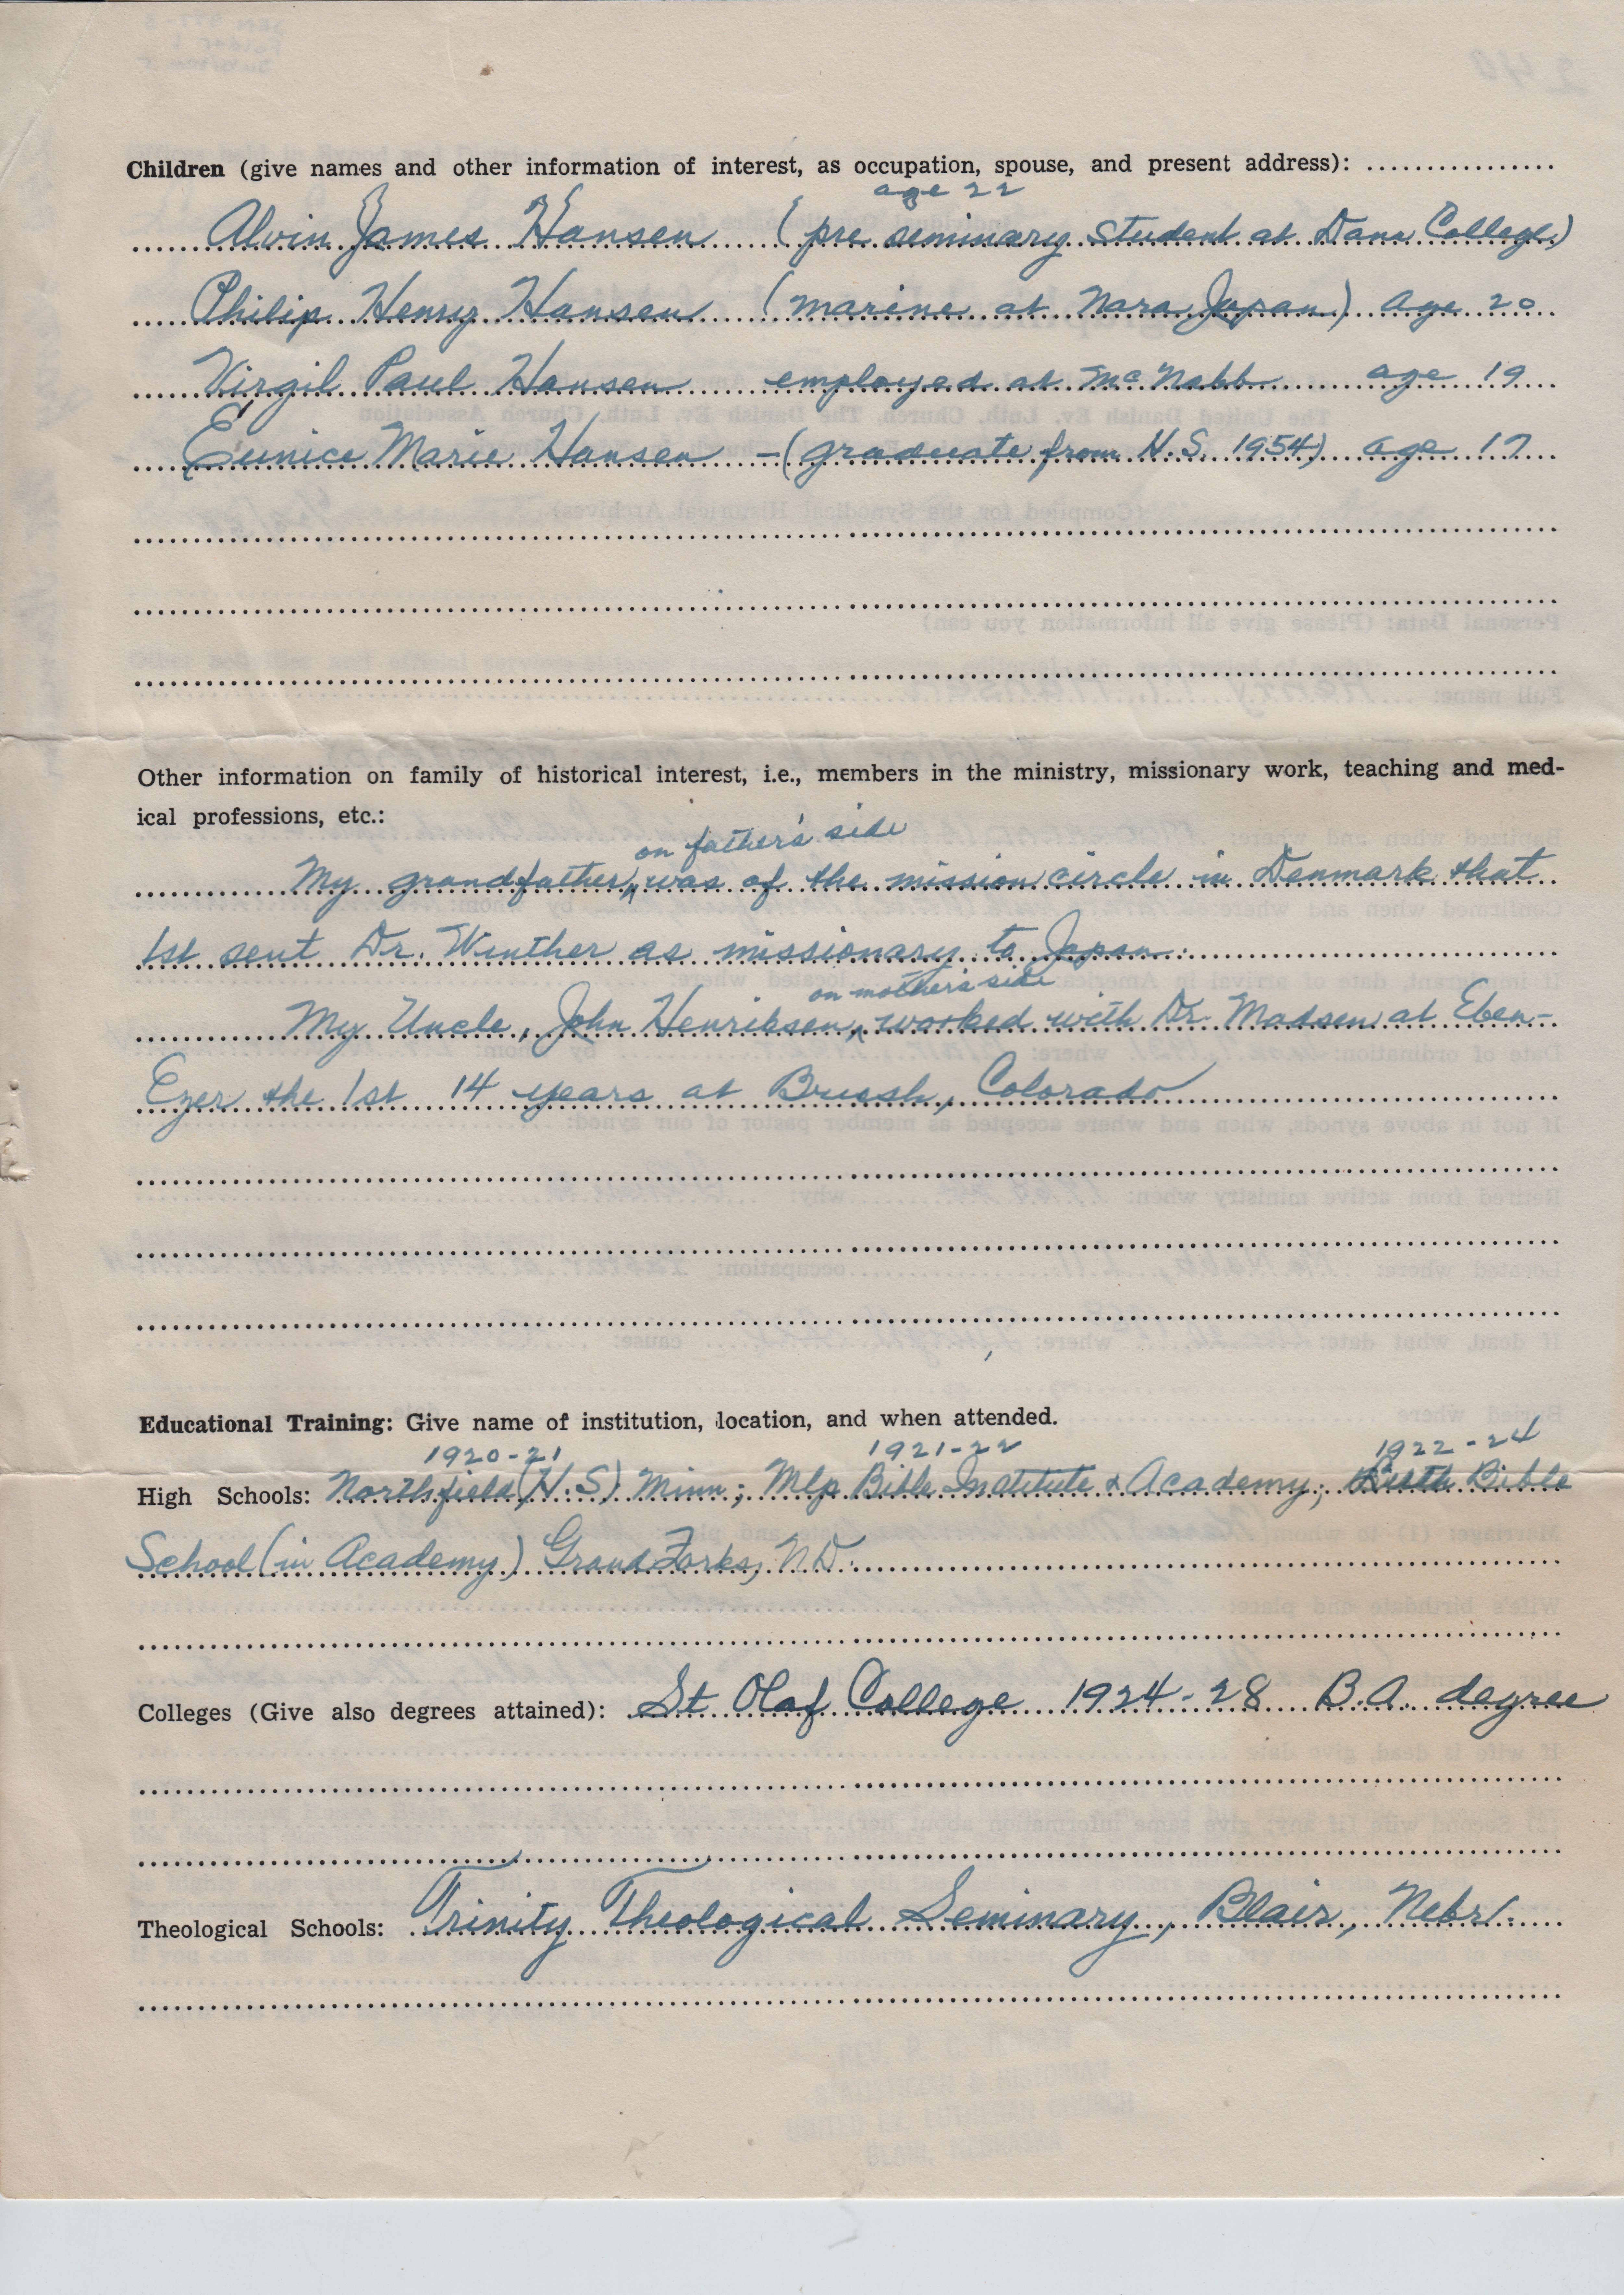 Children (give names and other information of interest, as occupation, spouse, and present address): ................
age 22
Alvin James Hansen (pre seminary student at Dana College)
Philip Henry Hansen (marine at Nara Japan) age 20
Virgil Paul Hansen employed at McNabb age 19
Eunice Marie Hansen - (graduate from H.S. 1954) age 17
Other information on family of historical interest, i.e., members in the ministry, missionary work, teaching and med-
ical professions, etc.:
on father's side
My grandfather, was of the mission circle in Denmark that
1st sent Dr. Winther as missionary to Japan.
on mother's side
My Uncle, John Henriksen, worked with Dr. Madsen at Eben-
Ezer the 1st 14 years at Brush, Colorado
Educational Training: Give name of institution, location, and when attended.
1920-21 1921-22 1922-24
High Schools: Northfield (H.S) Minn; Mlp Bible Institute & Academy; Bible
School (in Academy) Grand Forks, N.D.
Colleges (Give also degrees attained): St Olaf College 1924-28 B.A. degree
Theological Schools: Trinity Theological Seminary, Blair, Nebr.